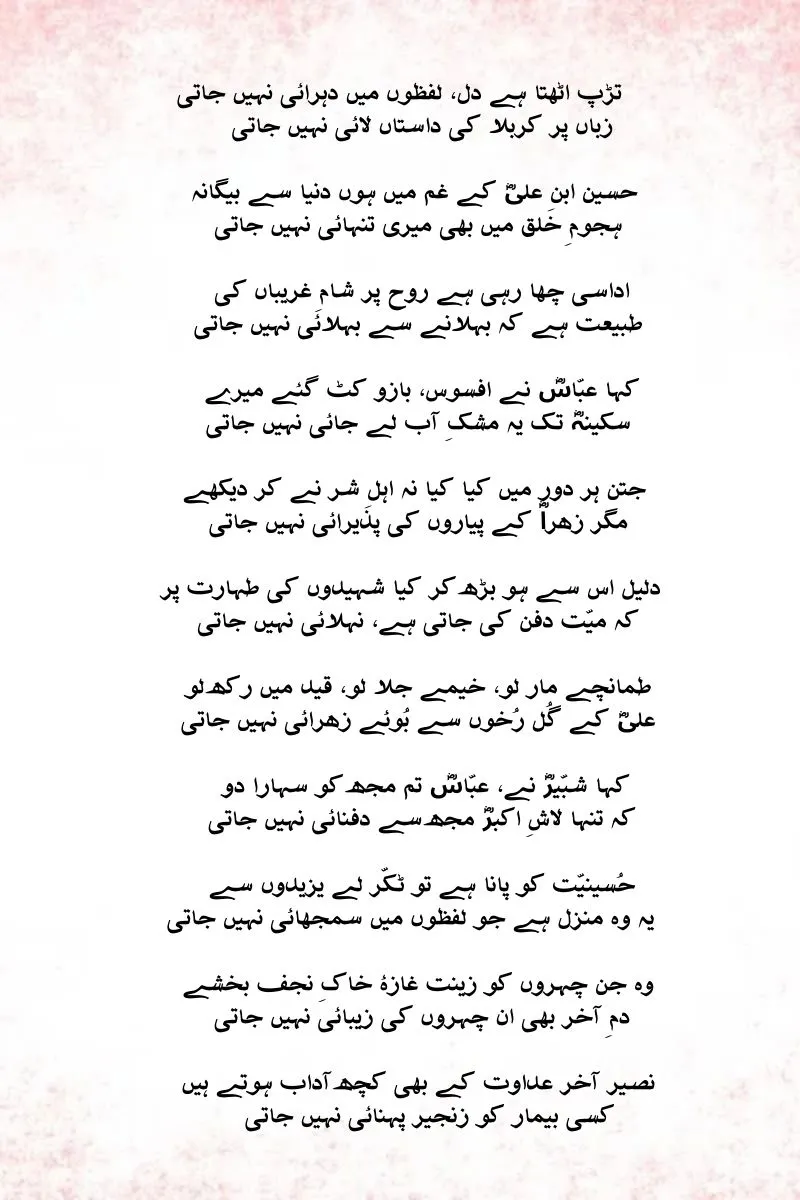 تڑپ اٹھتا ہے دل، لفظوں میں دہرائی نہیں جاتی
زباں پر کربلا کی داستاں لائی نہیں جاتی
حسین ابنِ علیؓ کے غم میں ہوں دنیا سے بیگانہ
ہجومِ خَلق میں بھی میری تنہائی نہیں جاتی
اداسی چھا رہی ہے روح پر شامِ غریباں کی
طبیعت ہے کہ بہلانے سے بہلائی نہیں جاتی
کہا عبّاسؓ نے افسوس، بازو کٹ گئے میرے
سکینہؓ تک یہ مشکِ آب لے جائی نہیں جاتی
جتن ہر دور میں کیا کیا نہ اہلِ شر نے کر دیکھے
مگر زھراؓ کے پیاروں کی پذیرائی نہیں جاتی
دلیل اس سے ہو بڑھ کر کیا شہیدوں کی طہارت پر
کہ میّت دفن کی جاتی ہے، نہلائی نہیں جاتی
طمانچے مار لو، خیمے جلا لو، قید میں رکھ لو
علیؓ کے گُل رُخوں سے بُوئے زھرائی نہیں جاتی
کہا شبّیرؓ نے، عبّاسؓ تم مجھ کو سہارا دو
کہ تنہا لاشِ اکبرؓ مجھ سے دفنائی نہیں جاتی
حُسینیّت کو پانا ہے تو ٹکّر لے یزیدوں سے
یہ وہ منزل ہے جو لفظوں میں سمجھائی نہیں جاتی
وہ جن چہروں کو زینت غازۂ خاکِ نجف بخشے
دمِ آخر بھی ان چہروں کی زیبائی نہیں جاتی
نصیر آخر عداوت کے بھی کچھ آداب ہوتے ہیں
کسی بیمار کو زنجیر پہنائی نہیں جاتی